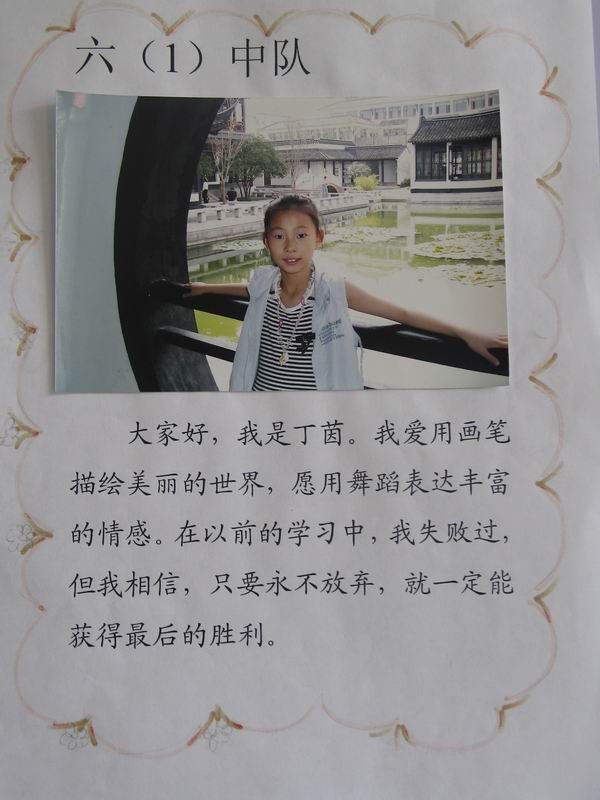 六（1）中队
大家好，我是丁茵。我爱用画笔
描绘美丽的世界，愿用舞蹈表达丰富
的情感。在以前的学习中，我失败过，
但我相信，只要永不放弃，就一定能
获得最后的胜利。